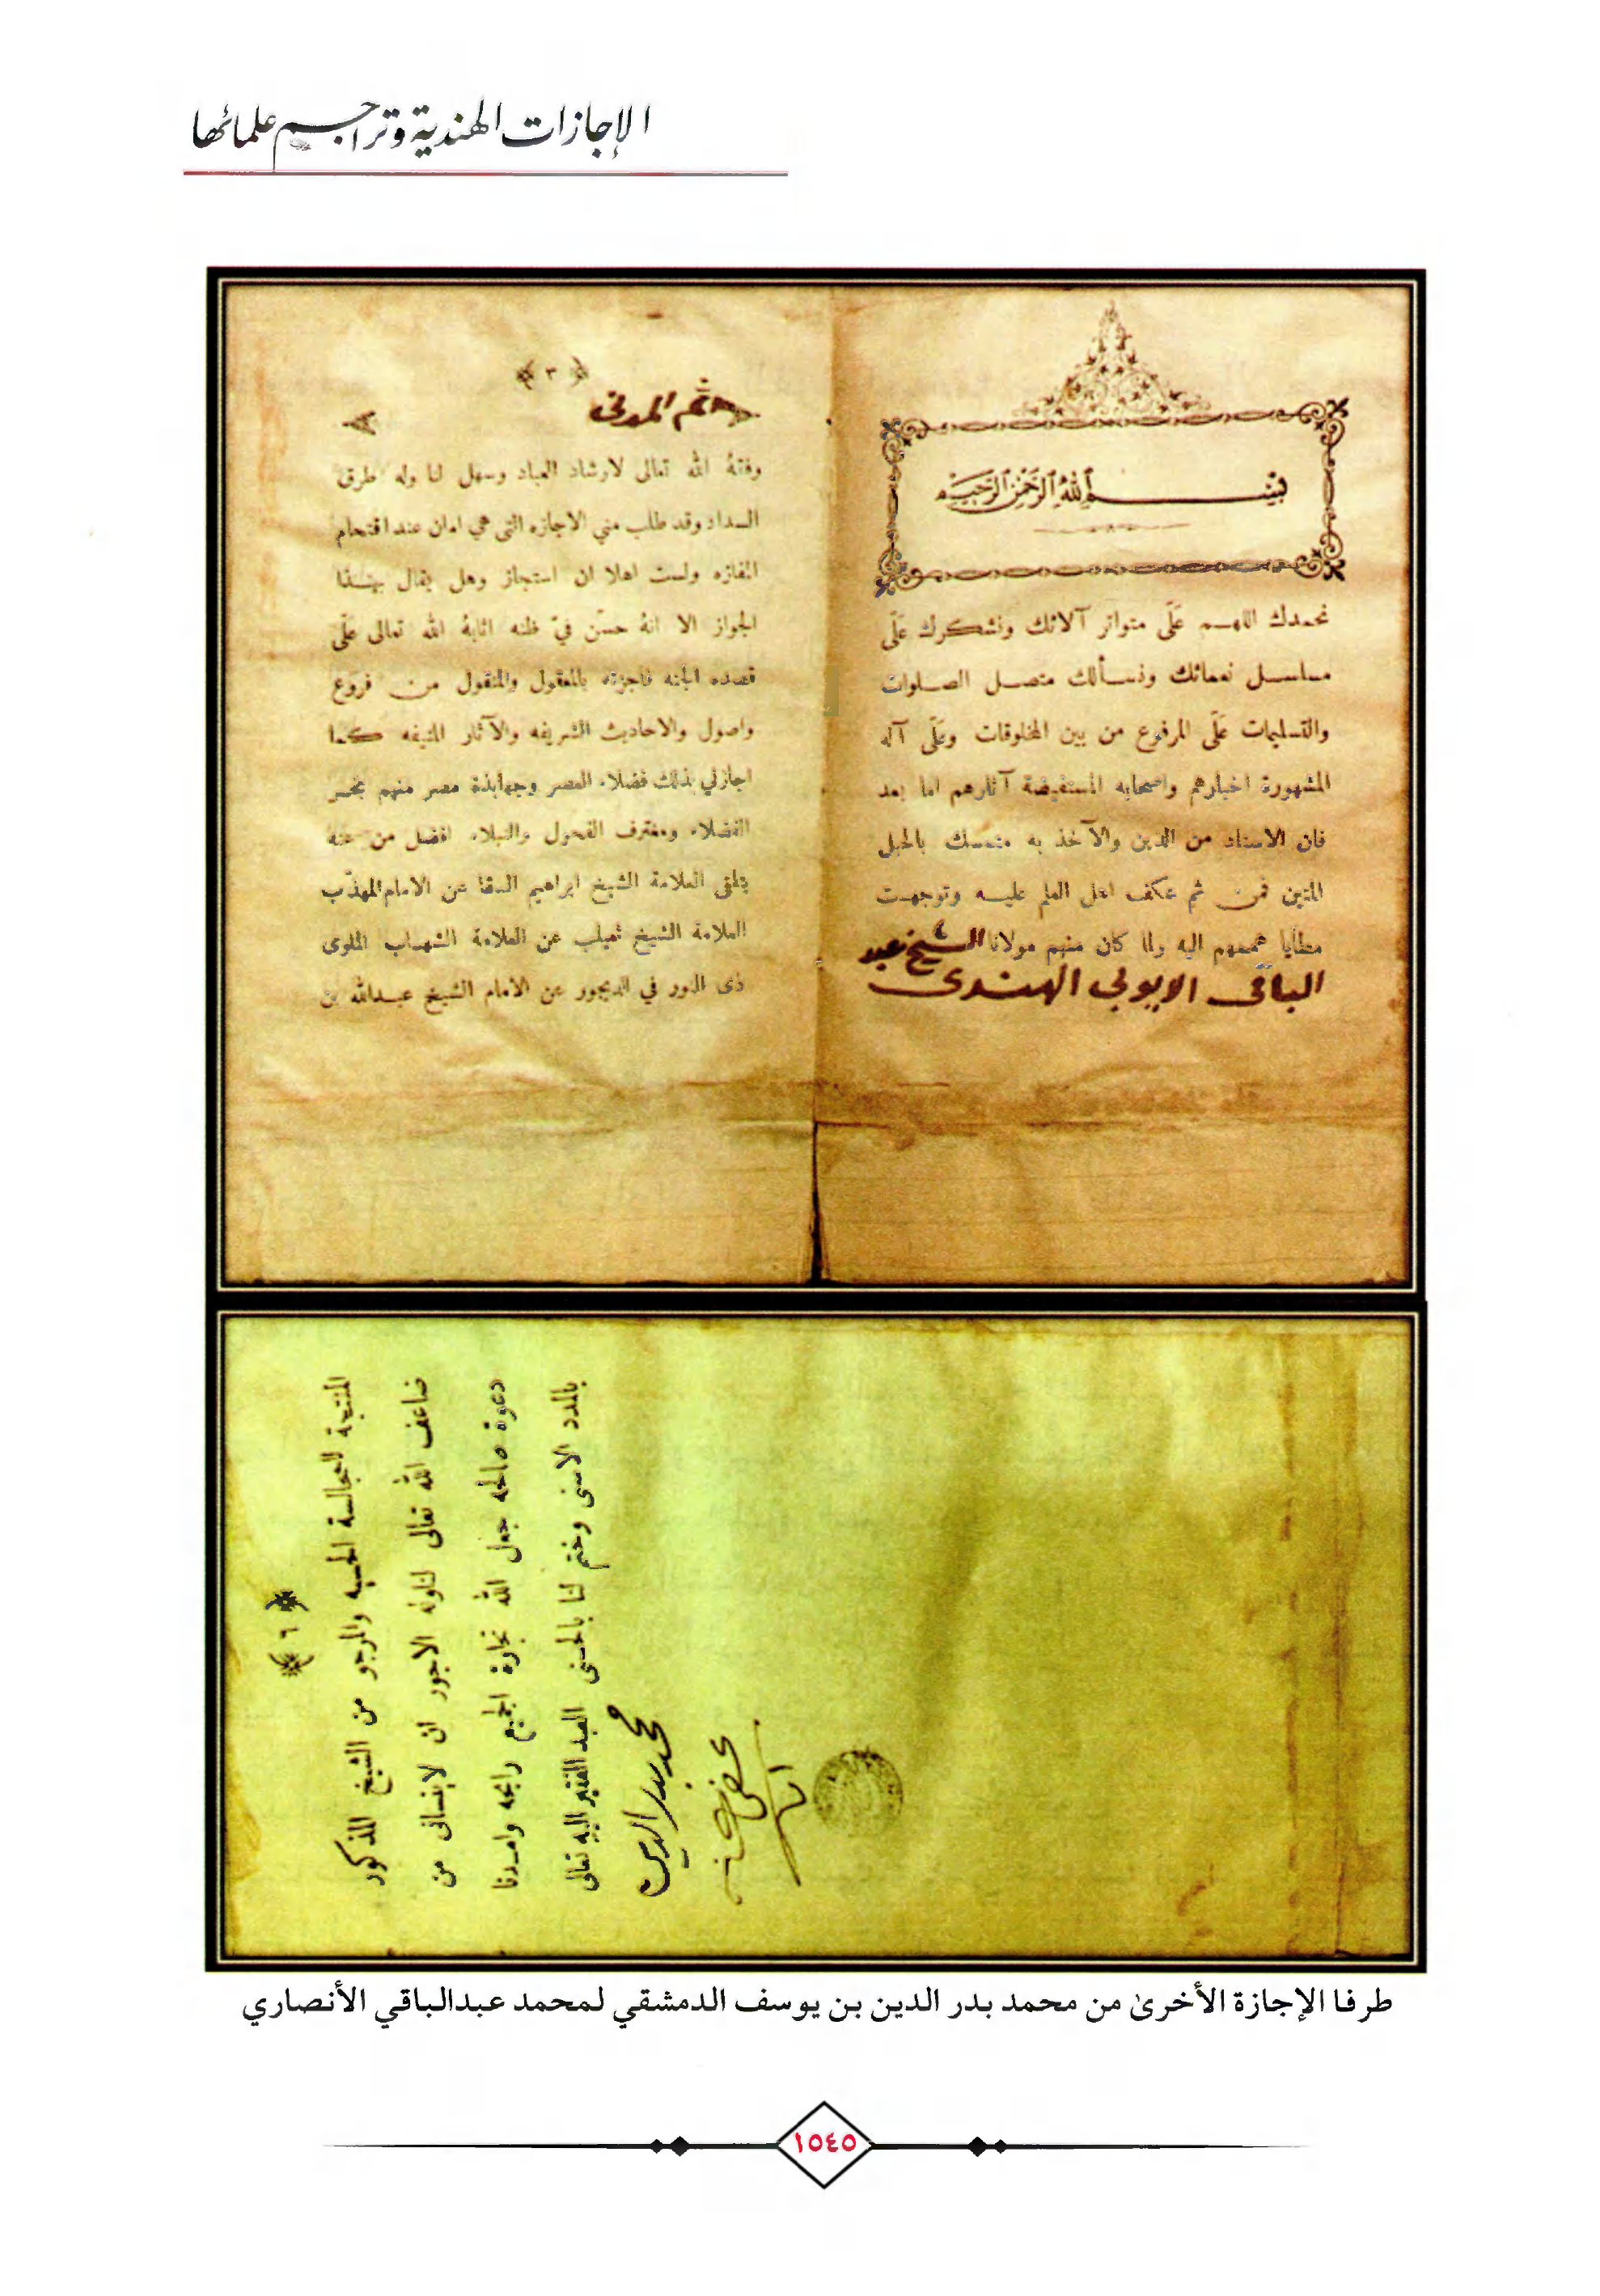 الإجازات الهندية وتراجم علمائها
بسم الله الرحمن الرحيم
نحمدك اللهم عَلَى متواتر آلائك ونشكرك عَلَى
مسلسل نعمائك ونسألك متصل الصلوات
والتسليمات عَلَى المرفوع من بين المخلوقات وعَلَى آله
المشهورة اخبارهم واصحابه المستفيضة آثارهم اما بعد
فان الاسناد من الدين والآخذ به متمسك بالحبل
المتين فمن ثم عكف اهل العلم عليه وتوجهت
مطايا هممهم اليه ولما كان منهم مولانا الشيخ عبد
الباقى الايوبي الهندى
﴿ ٣ ﴾
ثم المدنى
وفقهُ الله تعالى لارشاد العباد وسهل لنا وله طرق
السداد وقد طلب مني الاجازه التى هي امان عند اقتحام
المفازه ولست اهلا ان استجاز وهل يقال بهذا
الجواز الا انهُ حسّن فيّ ظنه اثابهُ الله تعالى عَلَى
قصده الجنه فاجزته بالمعقول والمنقول من فروع
واصول والاحاديث الشريفه والآثار المنيفه كما
اجازني بذلك فضلاء العصر وجهابذة مصر منهم بحر
الفضلاء ومغترف الفحول والنبلاء افضل من عنهُ
يتلقى العلامة الشيخ ابراهيم السقا عن الامام المهذب
العلامة الشيخ ثعيلب عن العلامة الشهاب الملوى
ذى النور في الديجور عن الامام الشيخ عبدالله بن
﴿ ٦ ﴾
المنتجة للمجالسة الحسيه والمرجو من الشيخ المذكور
ضاعف الله تعالى لنا وله الاجور ان لا ينسانى من
دعوة صالحه جعل الله تجارة الجميع رابحه وامدنا
بالمدد الاسنى وختم لنا بالحسنى العبد الفقير اليه تعالى
محمد بدر الدين
عفي عنه
طرفا الإجازة الأخرىٰ من محمد بدر الدين بن يوسف الدمشقي لمحمد عبدالباقي الأنصاري
١٥٤٥